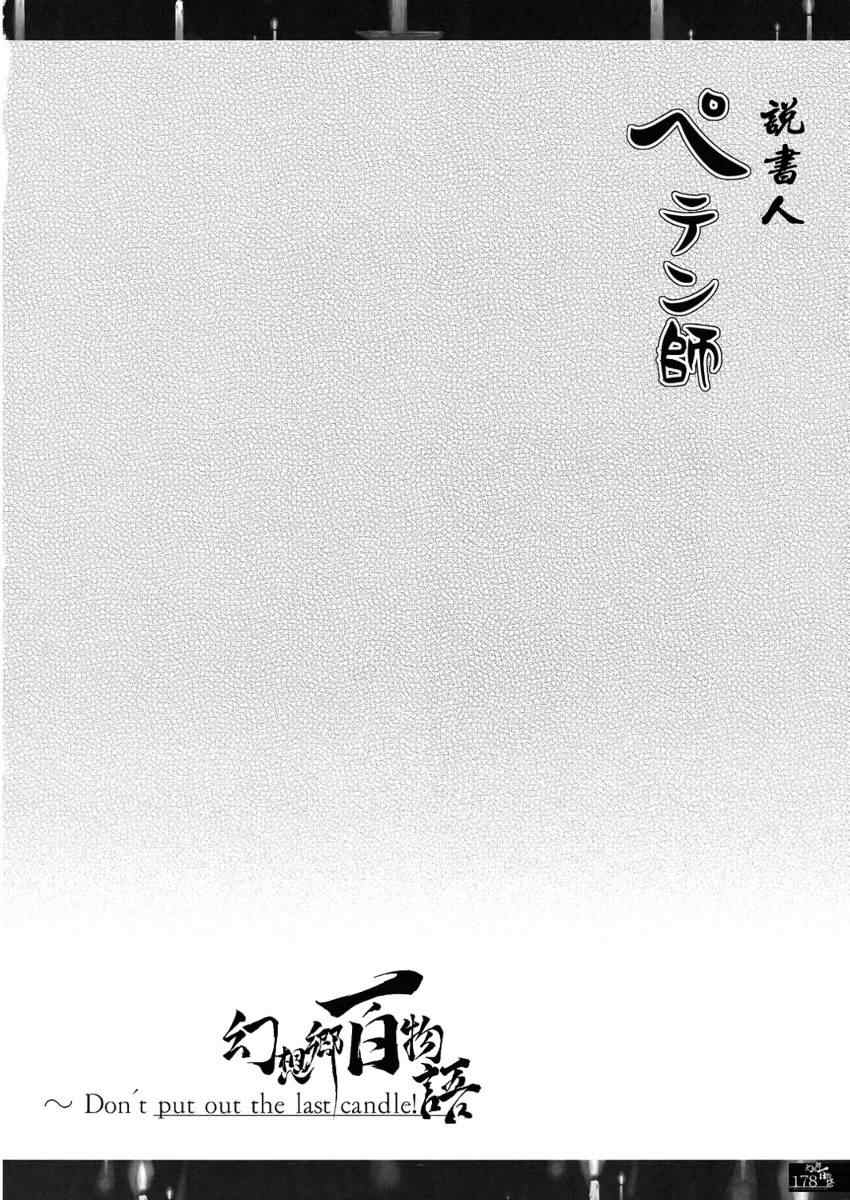 説書人
ペテン師
幻想郷百物語
～ Don´t put out the last candle!
178